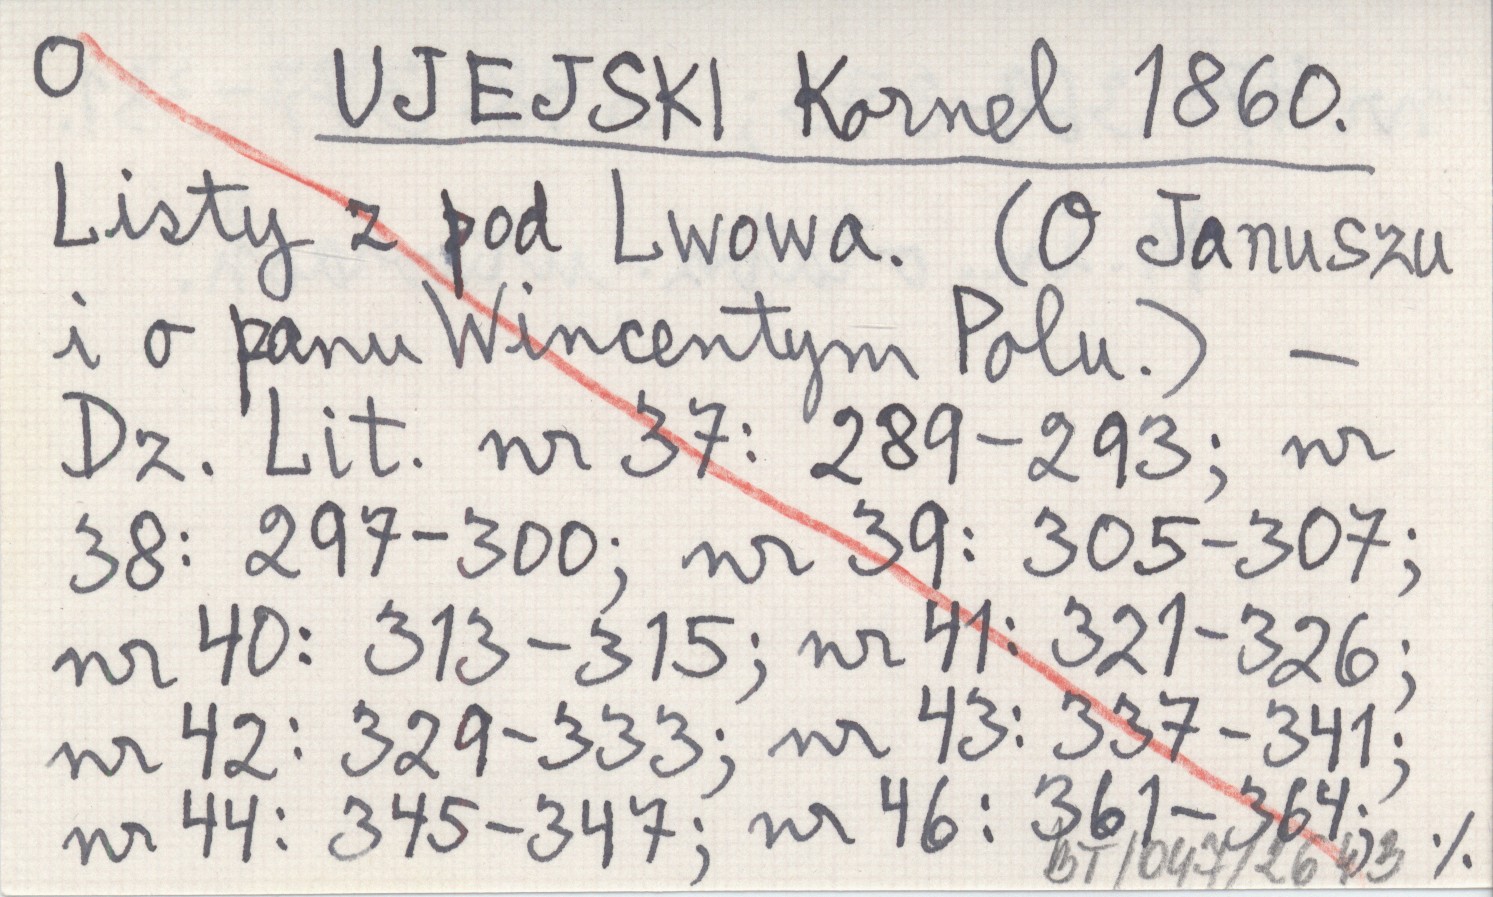 O UJEJSKI Kornel 1860.
Listy z pod Lwowa. (O Januszu
i o panu Wincentym Polu.) —
Dz. Lit. nr 37: 289-293; nr
38: 297-300; nr 39: 305-307;
nr 40: 313-315; nr 41: 321-326;
nr 42: 329-333; nr 43: 337-341;
nr 44: 345-347; nr 46: 361-364; %